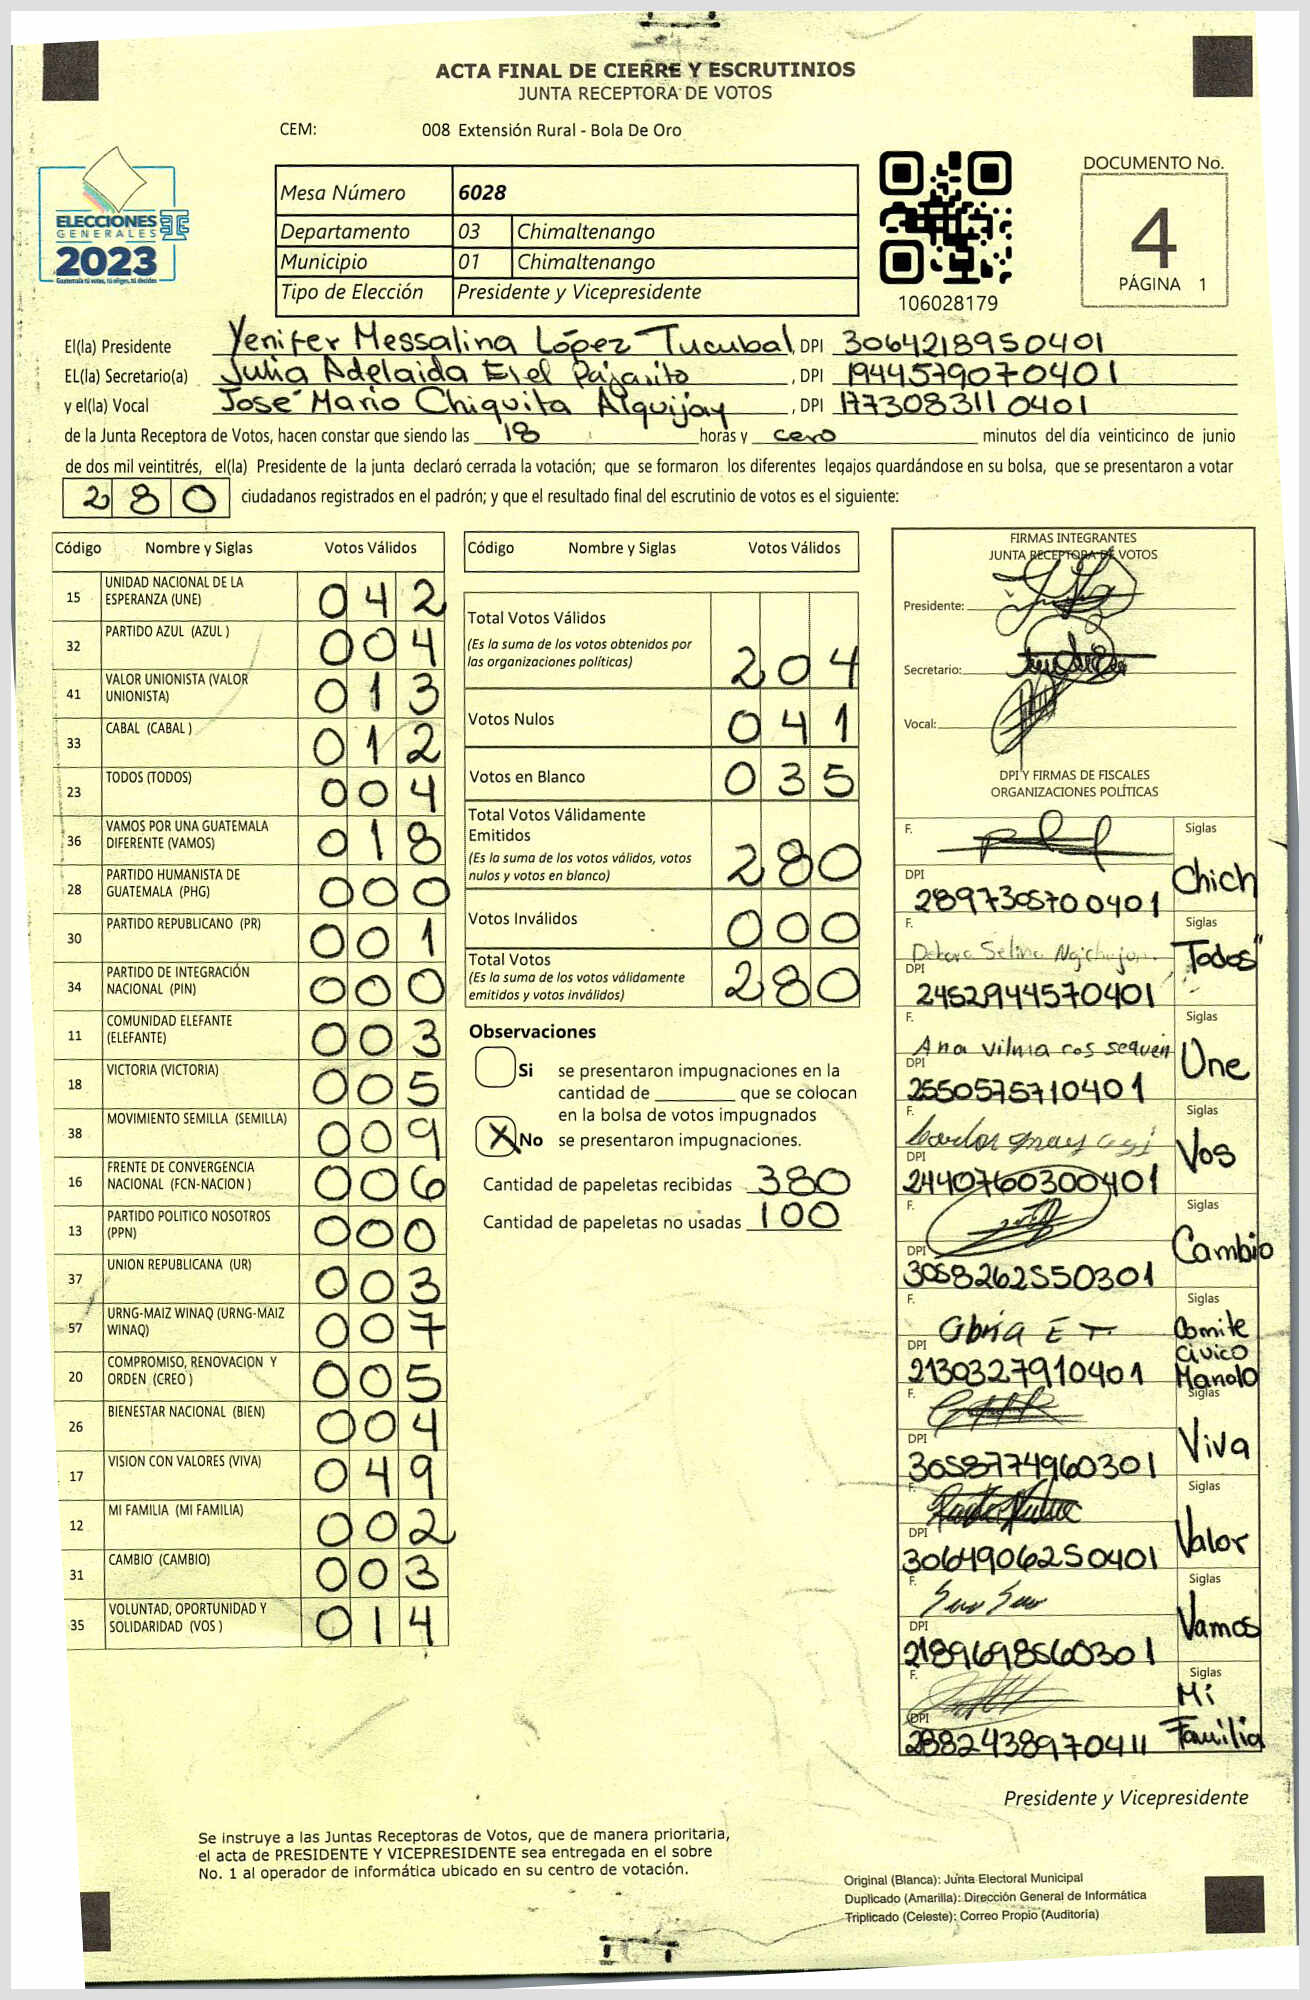 ACTA FINAL DE CIERRE Y ESCRUTINIOS
JUNTA RECEPTORA DE VOTOS
CEM: 008 Extensión Rural - Bola De Oro
ELECCIONES
GENERALES
2023
Guatemala tú votas, tú eliges, tú decides
Mesa Número 6028
Departamento 03 Chimaltenango
Municipio 01 Chimaltenango
Tipo de Elección Presidente y Vicepresidente
106028179
DOCUMENTO No.
4
PÁGINA 1
El(la) Presidente Yenifer Messalina López Tucubal, DPI 3064218950401
EL(la) Secretario(a) Julia Adelaida Pajarito, DPI 1944579070401
y el(la) Vocal José Mario Chiquita Alquijay, DPI 1773083110401
de la Junta Receptora de Votos, hacen constar que siendo las 18 horas y cero minutos del día veinticinco de junio
de dos mil veintitrés, el(la) Presidente de la junta declaró cerrada la votación; que se formaron los diferentes legajos quardándose en su bolsa, que se presentaron a votar
280 ciudadanos registrados en el padrón; y que el resultado final del escrutinio de votos es el siguiente:
Código Nombre y Siglas Votos Válidos
15 UNIDAD NACIONAL DE LA ESPERANZA (UNE) 042
32 PARTIDO AZUL (AZUL ) 004
41 VALOR UNIONISTA (VALOR UNIONISTA) 013
33 CABAL (CABAL ) 012
23 TODOS (TODOS) 004
36 VAMOS POR UNA GUATEMALA DIFERENTE (VAMOS) 018
28 PARTIDO HUMANISTA DE GUATEMALA (PHG) 000
30 PARTIDO REPUBLICANO (PR) 001
34 PARTIDO DE INTEGRACIÓN NACIONAL (PIN) 000
11 COMUNIDAD ELEFANTE (ELEFANTE) 003
18 VICTORIA (VICTORIA) 005
38 MOVIMIENTO SEMILLA (SEMILLA) 009
16 FRENTE DE CONVERGENCIA NACIONAL (FCN-NACION ) 006
13 PARTIDO POLITICO NOSOTROS (PPN) 000
37 UNION REPUBLICANA (UR) 003
57 URNG-MAIZ WINAQ (URNG-MAIZ WINAQ) 007
20 COMPROMISO, RENOVACION Y ORDEN (CREO ) 005
26 BIENESTAR NACIONAL (BIEN) 004
17 VISION CON VALORES (VIVA) 049
12 MI FAMILIA (MI FAMILIA) 002
31 CAMBIO (CAMBIO) 003
35 VOLUNTAD, OPORTUNIDAD Y SOLIDARIDAD (VOS ) 014
Código Nombre y Siglas Votos Válidos
Total Votos Válidos
(Es la suma de los votos obtenidos por
las organizaciones políticas) 204
Votos Nulos 041
Votos en Blanco 035
Total Votos Válidamente
Emitidos
(Es la suma de los votos válidos, votos
nulos y votos en blanco) 280
Votos Inválidos 000
Total Votos
(Es la suma de los votos válidamente
emitidos y votos inválidos) 280
Observaciones
Si se presentaron impugnaciones en la
cantidad de ________ que se colocan
en la bolsa de votos impugnados
X No se presentaron impugnaciones.
Cantidad de papeletas recibidas 380
Cantidad de papeletas no usadas 100
FIRMAS INTEGRANTES
JUNTA RECEPTORA DE VOTOS
Presidente:
Secretario:
Vocal:
DPI Y FIRMAS DE FISCALES
ORGANIZACIONES POLÍTICAS
F. Siglas
DPI 2897305700401 Chich
F. Siglas
DPI 2452944570401 Todos"
F. Ana Vilma cos sequen Siglas
DPI 2550575710401 Une
F. Siglas
DPI 2440760300401 Vos
F. Siglas
DPI 3058262550301 Cambio
F. Siglas
DPI 2130327910401 Comite Civico Manolo
F. Siglas
DPI 3058774960301 Viva
F. Siglas
DPI 3064906250401 Valor
F. Siglas
DPI 2189698560301 Vamos
F. Siglas
DPI 2882438970411 Mi Familia
Presidente y Vicepresidente
Se instruye a las Juntas Receptoras de Votos, que de manera prioritaria,
el acta de PRESIDENTE Y VICEPRESIDENTE sea entregada en el sobre
No. 1 al operador de informática ubicado en su centro de votación.
Original (Blanca): Junta Electoral Municipal
Duplicado (Amarilla): Dirección General de Informática
Triplicado (Celeste): Correo Propio (Auditoría)